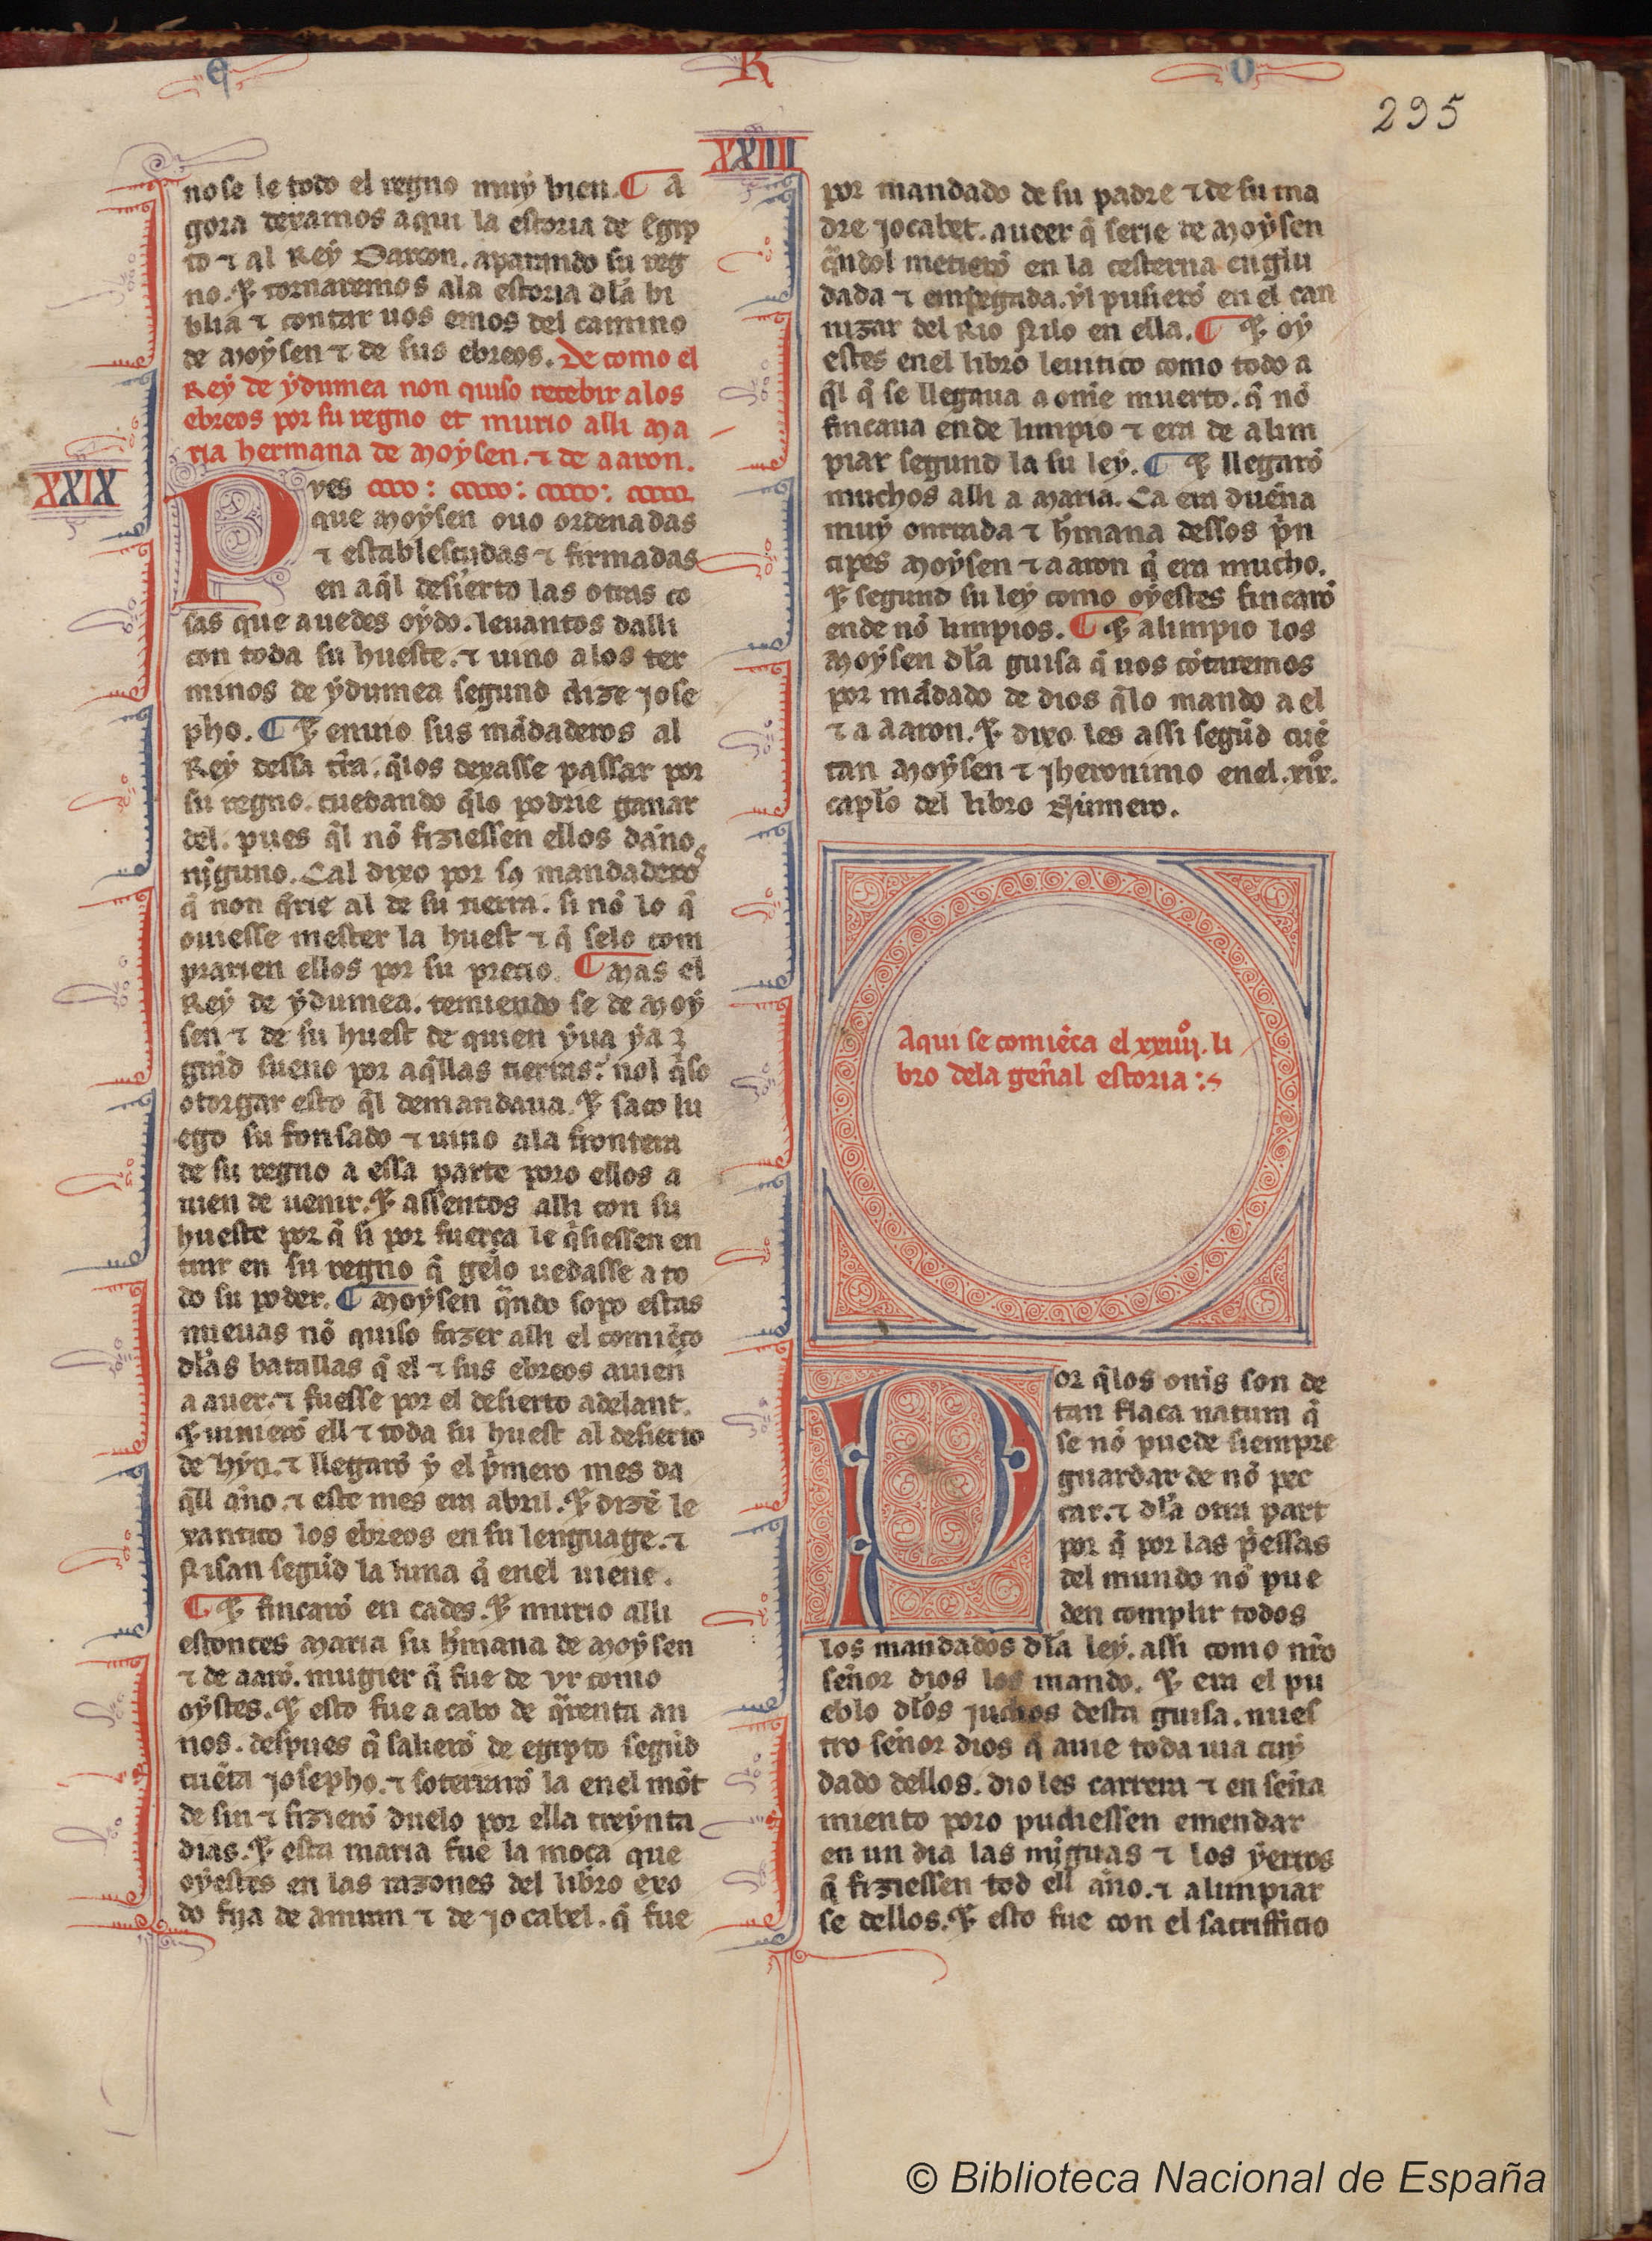 e R o
295
XXIIII
nose le todo el regno muy bien. ¶ A
gora dexamos aqui la estoria de Egip
to ⁊ al Rey Darcon. aparando su reg
no. ⁊ tornaremos ala estoria dĺa bi
blia ⁊ contar uos emos del camino
de Moysen ⁊ de sus ebreos. De como el
Rey de ydumea non quiso recebir alos
ebreos por su regno et murio alli Ma
ria hermana de Moysen. ⁊ de aaron.
XXIX
Pves
que Moysen ouo ordenadas
⁊ establesçudas ⁊ firmadas
en aq̃l desierto las otras co
sas que auedes oydo. leuantos dalli
con toda su hueste. ⁊ uino alos ter
minos de ydumea segund dize Jose
pho. ¶ ⁊ enuio sus mãdaderos al
Rey dessa tr̃a. q̃los dexasse passar por
su regno. cuedando q̃lo podrie ganar
del. pues q̃l nõ fiziessen ellos danno
niguno. Cal dixo por sꝯ mandaderos
q̃ non q̃rie al de su tierra. si nõ lo q̃
ouiesse mester la huest ⁊ q̃ selo com
prarien ellos por su precio. ¶ Mas el
Rey de ydumea. temiendo se de Moy
sen ⁊ de su huest de quien yua ya
grãd sueno por aq̃llas tierras: nol q̃so
otorgar esto q̃l demandaua. ⁊ saco lu
ego su fonsado ⁊ uino ala frontera
de su regno a essa parte poro ellos a
uien de uenir. ⁊ assentos alli con su
hueste por q̃ si por fuerça le q̃siessen en
trar en su regno q̃ gelo uedasse a to
do su poder. ¶ Moysen q̃ndo sopo estas
nueuas nõ quiso fazer alli el comiẽço
dĺas batallas q̃ el ⁊ sus ebreos auien
a auer. ⁊ fuesse por el desierto adelant.
⁊ uinierõ ell ⁊ toda su huest al desierto
de hyn. ⁊ llegarõ y el p̃mero mes da
q̃ll año. ⁊ este mes era abril. ⁊ dizẽ le
xantico los ebreos en su lenguage. ⁊
Nisan segũd la luna q̃ enel uiene.
¶ ⁊ fincarõ en cades. ⁊ murio alli
estonces Maria su h̃mana de Moysen
⁊ de aarõ. mugier q̃ fue de vr como
oystes. ⁊ esto fue a cabo de q̃renta an
nos. despues q̃ salierõ de egipto segũd
cuẽta Josepho. ⁊ soterrarõ la enel mõt
de sin ⁊ fizierõ duelo por ella treynta
dias. ⁊ esta maria fue la moça que
oyestes en las razones del libro exo
do fija de amram ⁊ de Jocabel. q̃ fue
por mandado de su padre ⁊ de su ma
dre Jocabet. a ueer q̃ serie de Moysen
q̃ndol metierõ en la cesterna englu
dada ⁊ empegada. yl pusierõ en el can
nizar del Rio Nilo en ella. ¶ ⁊ oy
estes enel libro leuitico como todo a
q̃l q̃ se llegaua a omẽ muerto. q̃ nõ
fincaua ende limpio ⁊ era de alim
piar segund la su ley. ¶ ⁊ llegarõ
muchos alli a Maria. Ca era duẽna
muy onrrada ⁊ h̃mana dessos p̃n
cipes Moysen ⁊ aaron q̃ era mucho.
⁊ segund su ley como oyestes fincarõ
ende nõ limpios. ¶ ⁊ alimpio los
Moysen dĺa guisa q̃ uos cõtaremos
por mãdado de dios q̃lo mando a el
⁊ a aaron. ⁊ dixo les assi segũd cuẽ
tan Moysen ⁊ Jheronimo enel. xix.
capĺo del libro Numero.
Aqui se comiẽça el xxiiijº. li
bro dela geñal estoria :
Por q̃los om̃s son de
tan flaca natura q̃
se nõ puede siempre
guardar de nõ pec
car. ⁊ dĺa otra part
por q̃ por las p̃essas
del mundo nõ pue
den complir todos
los mandados dĺa ley. assi como nr̃o
señor dios los mando. ⁊ era el pu
eblo dĺos judios desta guisa. nues
tro señor dios q̃ auie toda uia cuy
dado dellos. dio les carrera ⁊ enseña
miento poro pudiessen emendar
en un dia las mĩguas ⁊ los yerros
q̃ fiziessen tod ell año. ⁊ alimpiar
se dellos. ⁊ esto fue con el sacrifficio
© Biblioteca Nacional de España